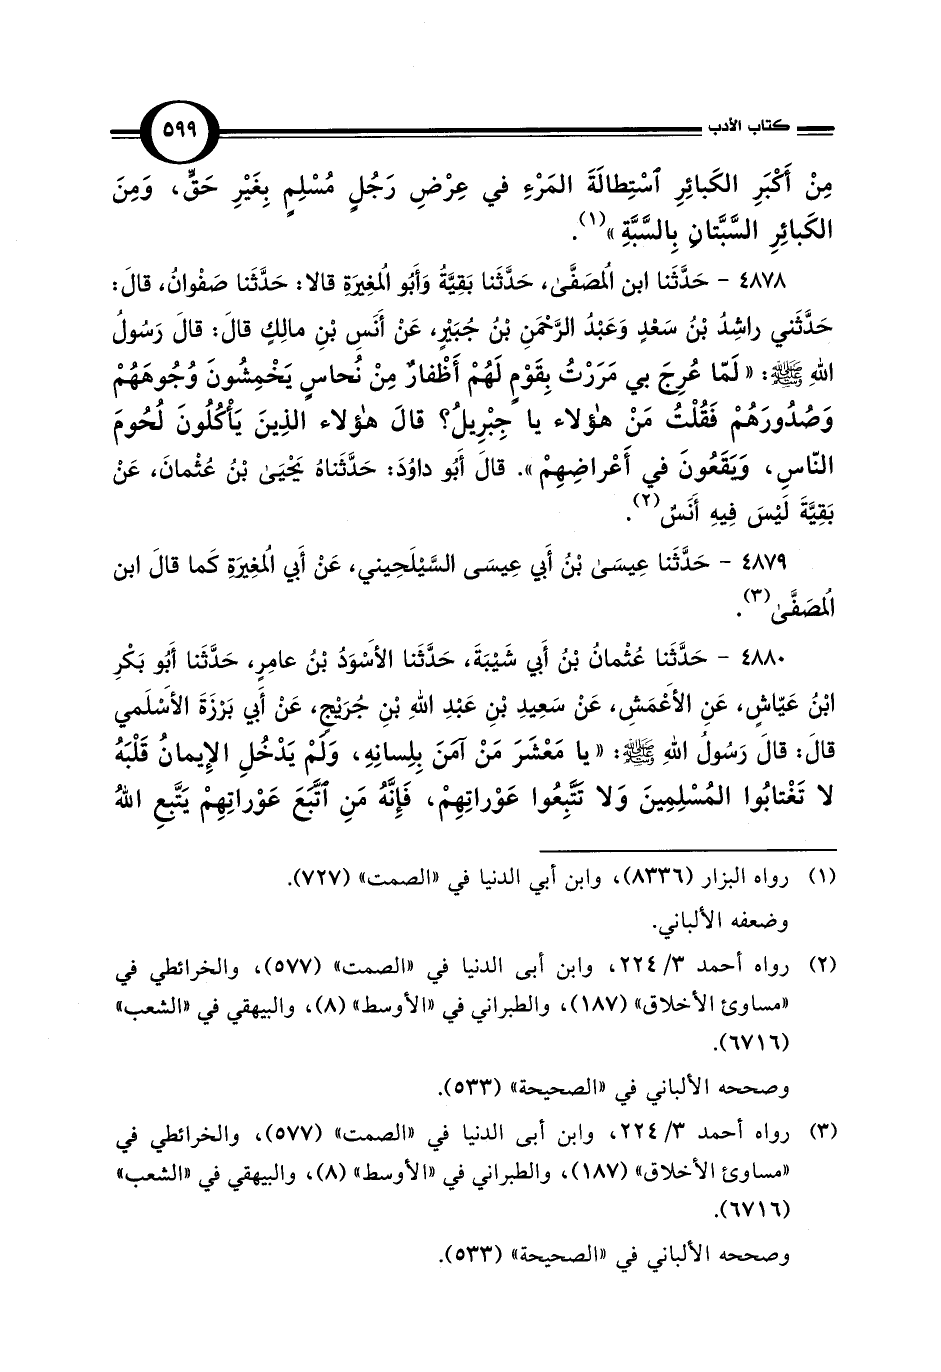 كتاب الأدب ٥٩٩
مِنْ أَكْبَرِ الكَبائِرِ ٱسْتِطالَةَ المَرْءِ في عِرْضِ رَجُلٍ مُسْلِمٍ بِغَيْرِ حَقٍّ، وَمِنَ
الكَبائِرِ السَّبَّتانِ بِالسَّبَّةِ»(١).
٤٨٧٨ - حَدَّثَنا ابن المُصَفَّىٰ، حَدَّثَنا بَقِيَّةُ وَأَبُو المُغِيرَةِ قالا: حَدَّثَنا صَفْوانُ، قالَ:
حَدَّثَني راشِدُ بْنُ سَعْدٍ وَعَبْدُ الرَّحْمَنِ بْنُ جُبَيْرٍ، عَنْ أَنَسِ بْنِ مالِكٍ قالَ: قالَ رَسُولُ
اللهِ ﷺ: «لَمّا عُرِجَ بي مَرَرْتُ بِقَوْمٍ لَهُمْ أَظْفارٌ مِنْ نُحاسٍ يَخْمِشُونَ وُجُوهَهُمْ
وَصُدُورَهُمْ فَقُلْتُ مَنْ هٰؤلاء يا جِبْرِيلُ؟ قالَ هٰؤلاء الذِينَ يَأْكُلُونَ لُحُومَ
النّاسِ، وَيَقَعُونَ في أَعْراضِهِمْ». قالَ أَبُو داوُدَ: حَدَّثَناهُ يَحْيَىٰ بْنُ عُثْمانَ، عَنْ
بَقِيَّةَ لَيْسَ فِيهِ أَنَسٌ(٢).
٤٨٧٩ - حَدَّثَنا عِيسَىٰ بْنُ أَبي عِيسَى السَّيْلَحِيني، عَنْ أَبي المُغِيرَةِ كَما قالَ ابن
المُصَفَّىٰ(٣).
٤٨٨٠ - حَدَّثَنا عُثْمانُ بْنُ أَبي شَيْبَةَ، حَدَّثَنا الأَسْوَدُ بْنُ عامِرٍ، حَدَّثَنا أَبُو بَكْرِ
ابْنُ عَيّاشٍ، عَنِ الأَعْمَشِ، عَنْ سَعِيدِ بْنِ عَبْدِ اللهِ بْنِ جُرَيْجٍ، عَنْ أَبي بَرْزَةَ الأَسْلَمي
قالَ: قالَ رَسُولُ اللهِ ﷺ: «يا مَعْشَرَ مَنْ آمَنَ بِلِسانِهِ، وَلَمْ يَدْخُلِ الإِيمانُ قَلْبَهُ
لا تَغْتابُوا المُسْلِمِينَ وَلا تَتَّبِعُوا عَوْراتِهِمْ، فَإِنَّهُ مَنِ ٱتَّبَعَ عَوْراتِهِمْ يَتَّبِعِ اللهُ
(١) رواه البزار (٨٣٣٦)، وابن أبي الدنيا في «الصمت» (٧٢٧).
وضعفه الألباني.
(٢) رواه أحمد ٣/ ٢٢٤، وابن أبى الدنيا في «الصمت» (٥٧٧)، والخرائطي في
«مساوئ الأخلاق» (١٨٧)، والطبراني في «الأوسط» (٨)، والبيهقي في «الشعب»
(٦٧١٦).
وصححه الألباني في «الصحيحة» (٥٣٣).
(٣) رواه أحمد ٣/ ٢٢٤، وابن أبى الدنيا في «الصمت» (٥٧٧)، والخرائطي في
«مساوئ الأخلاق» (١٨٧)، والطبراني في «الأوسط» (٨)، والبيهقي في «الشعب»
(٦٧١٦).
وصححه الألباني في «الصحيحة» (٥٣٣).